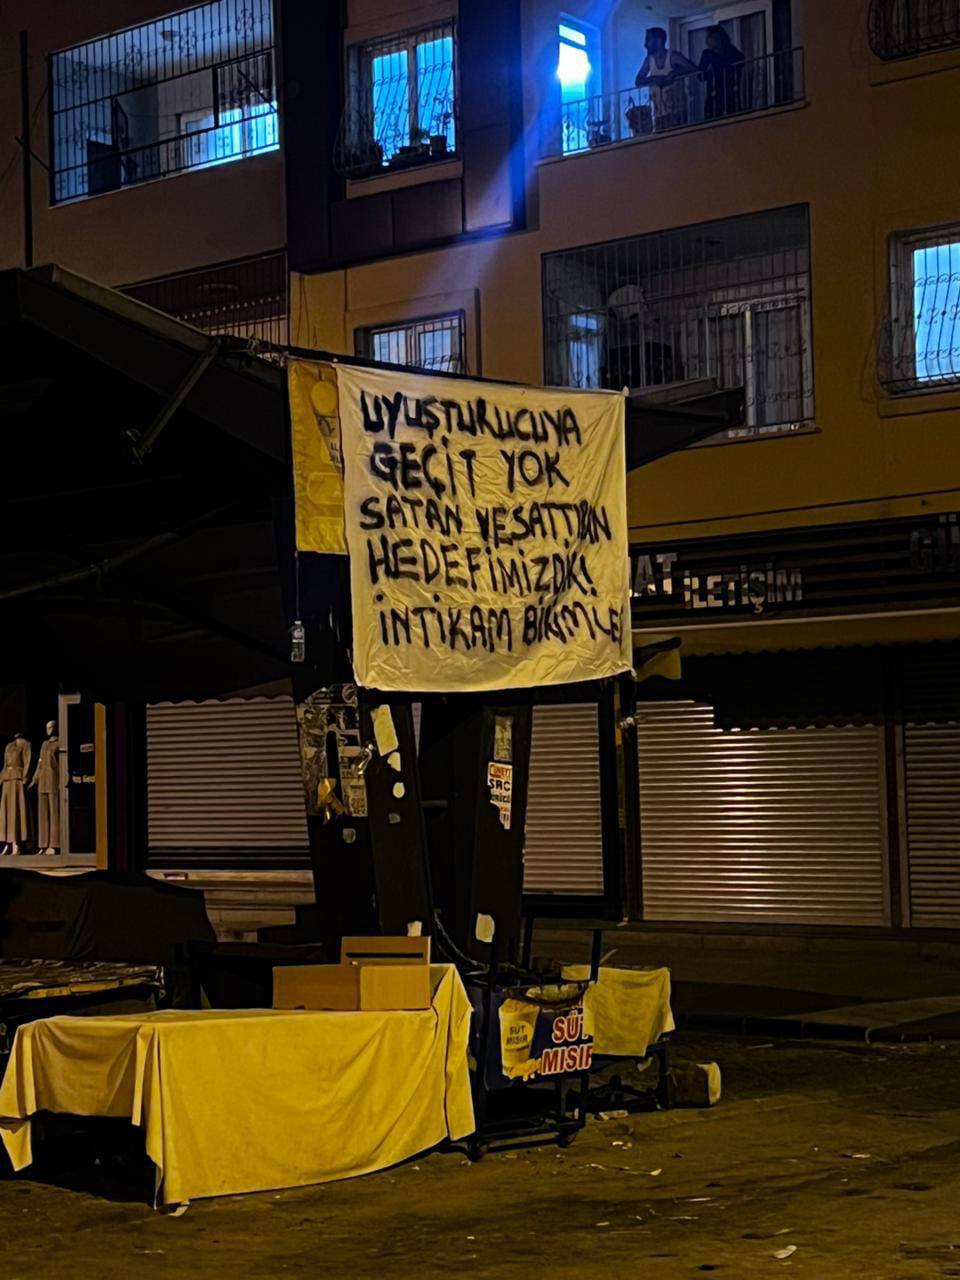 UYUŞTURUCUYA
GEÇİT YOK
SATAN VE SATTIRAN
HEDEFİMİZDİR!
İNTİKAM BİRİMLE
İLETİŞİM
SRC
SÜT
MISIR
SÜT
MISIR